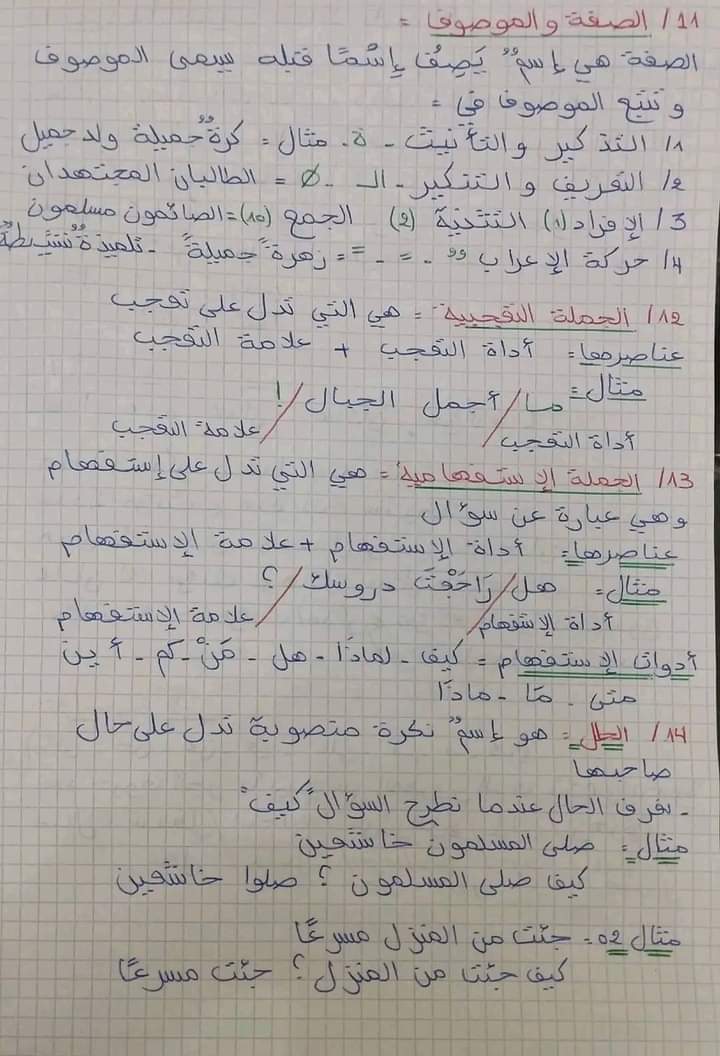 11/ الصفة والموصوف =
الصفة هي إسمٌ يَصِفُ إسْمًا قبله يسمى الموصوف
وتتبع الموصوف في =
1/ التذكير والتأنيث - ة. مثال = كرةٌ جميلة ولد جميل
2/ التعريف والتنكير - الـ - Ø = الطالبان المجتهدان
3/ الإفراد (1) التثنية (2) الجمع (10) = الصائمون مسلمون
4/ حركة الإعراب ـٌ - ـَ - ـً = زهرةً جميلةً - تلميذةٌ نشيطةٌ
12/ الجملة التعجبية = هي التي تدل على تعجب
عناصرها = أداة التعجب + علامة التعجب
مثال = ما / أجمل الجبال / !
أداة التعجب علامة التعجب
13/ الجملة الإستفهامية = هي التي تدل على إستفهام
وهي عبارة عن سؤال
عناصرها = أداة الإستفهام + علامة الإستفهام
مثال = هل / رَاجَعْتَ دروسك / ؟
أداة الإستفهام علامة الإستفهام
أدوات الإستفهام = كيف - لماذَا - هل - مَنْ - كم - أين
متى - مَا - ماذَا
14/ الحال = هو إسمٌ نكرة منصوبة تدل على حال
صاحبها
- نعرف الحال عندما نطرح السؤال "كيف"
مثال = صلى المسلمون خاشعين
كيف صلى المسلمون ؟ صلوا خاشعين
مثال 02 = جئت من المنزل مسرعًا
كيف جئت من المنزل ؟ جئت مسرعًا